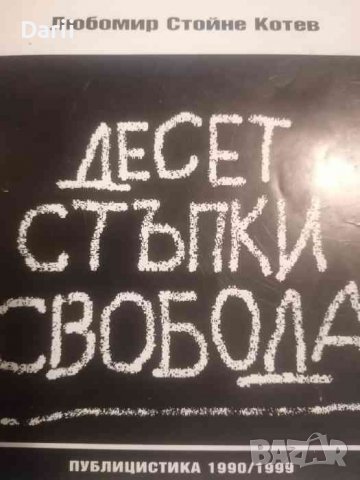 Любомир Стойне Котев
ДЕСЕТ
СТЪПКИ
СВОБОДА
ПУБЛИЦИСТИКА 1990/1999
Darii
БАЗАР